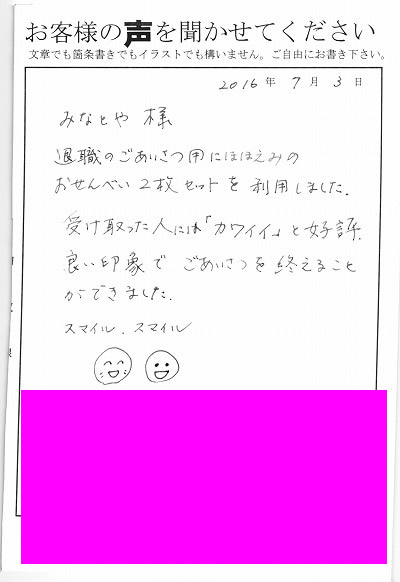 お客様の声を聞かせてください
文章でも箇条書きでもイラストでも構いません。ご自由にお書き下さい。
2016年 7月 3日
みなとや 様
退職のごあいさつ用にほほえみの
おせんべい2枚セットを利用しました.
受け取った人には「カワイイ」と好評.
良い印象で ごあいさつを終えること
ができました.
スマイル. スマイル